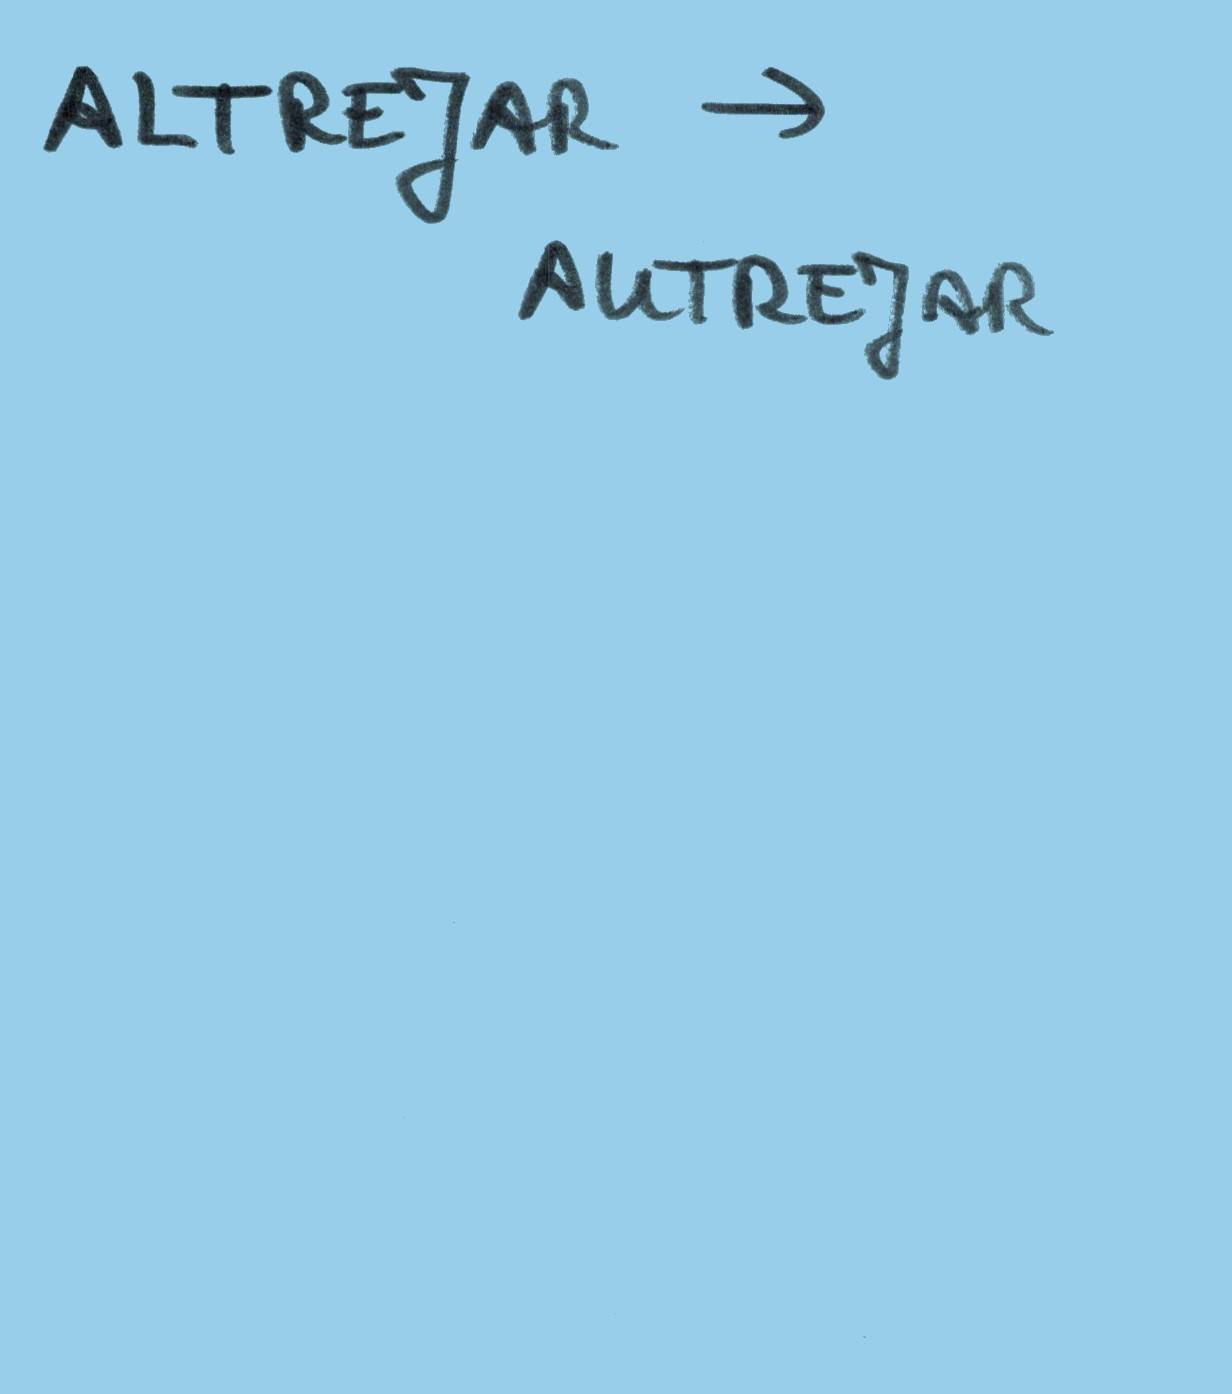 ALTREJAR →
AUTREJAR